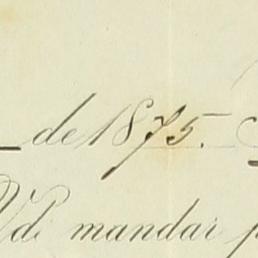 de 1875.
Vd. mandar p